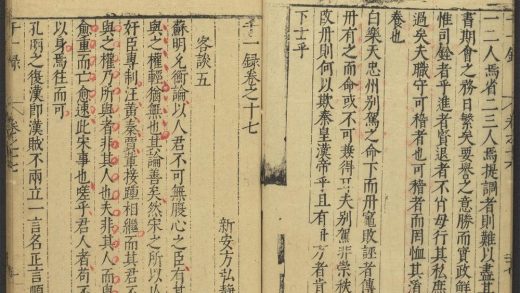 一二人焉省二三人焉提調者則難以盡其
書期會之務日繁矣要譽之意勝而實政鮮
惟司銓者乎進者賢退者不肖毋行其私庶
過矣夫職守可稽者也可稽者而罔恤其淆
卷也
白樂天忠州别駕之命下而丹竈敗誣者傳
丹有之而命或不可兼得耳夫别駕非崇秩
改丹則何以欺秦皇漢帝乎且有丹方者肯
下士乎
千一録卷之十七
新安方弘靜
客談五
蘇明允衡論以人君不可無腹心之臣有其
與之權輕猶無也其論善矣然宋之所以
奸臣專制汪黄秦賈董接踵相繼而其君
與之權乃所與者非其人也夫非其人而
愈重而亡愈速此宋事也嗟乎君人者苟
以身焉徃而可
孔明之復漢即漢賊不兩立一言名正言順
千一録 卷之十七